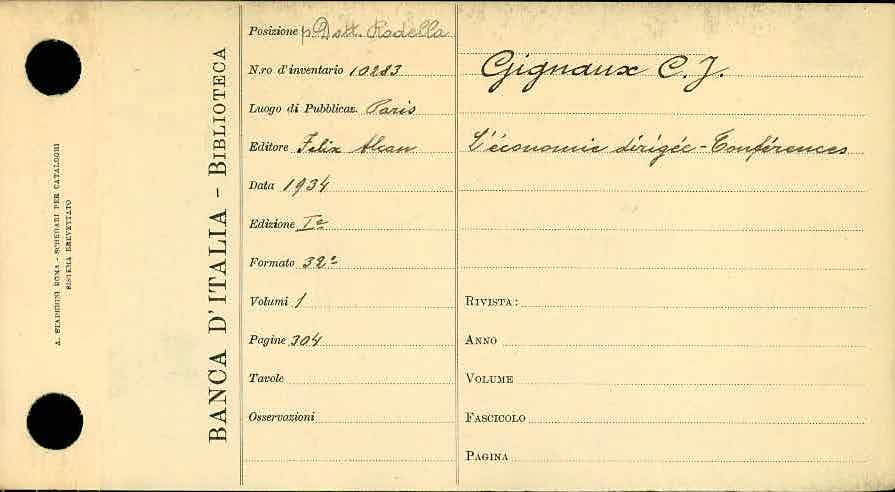 A. STADERINI ROMA - SCHEDARI PER CATALOGHI
SISTEMA BREVETTATO
BANCA D'ITALIA - BIBLIOTECA
Posizione p. Dott. Rodella
N.ro d'inventario 10283
Luogo di Pubblicaz. Paris
Editore Felix Alcan
Data 1934
Edizione Iª
Formato 32º
Volumi 1
Pagine 304
Tavole
Osservazioni
Gignoux C. J.
L'économie dirigée - Conférences
RIVISTA:
ANNO
VOLUME
FASCICOLO
PAGINA